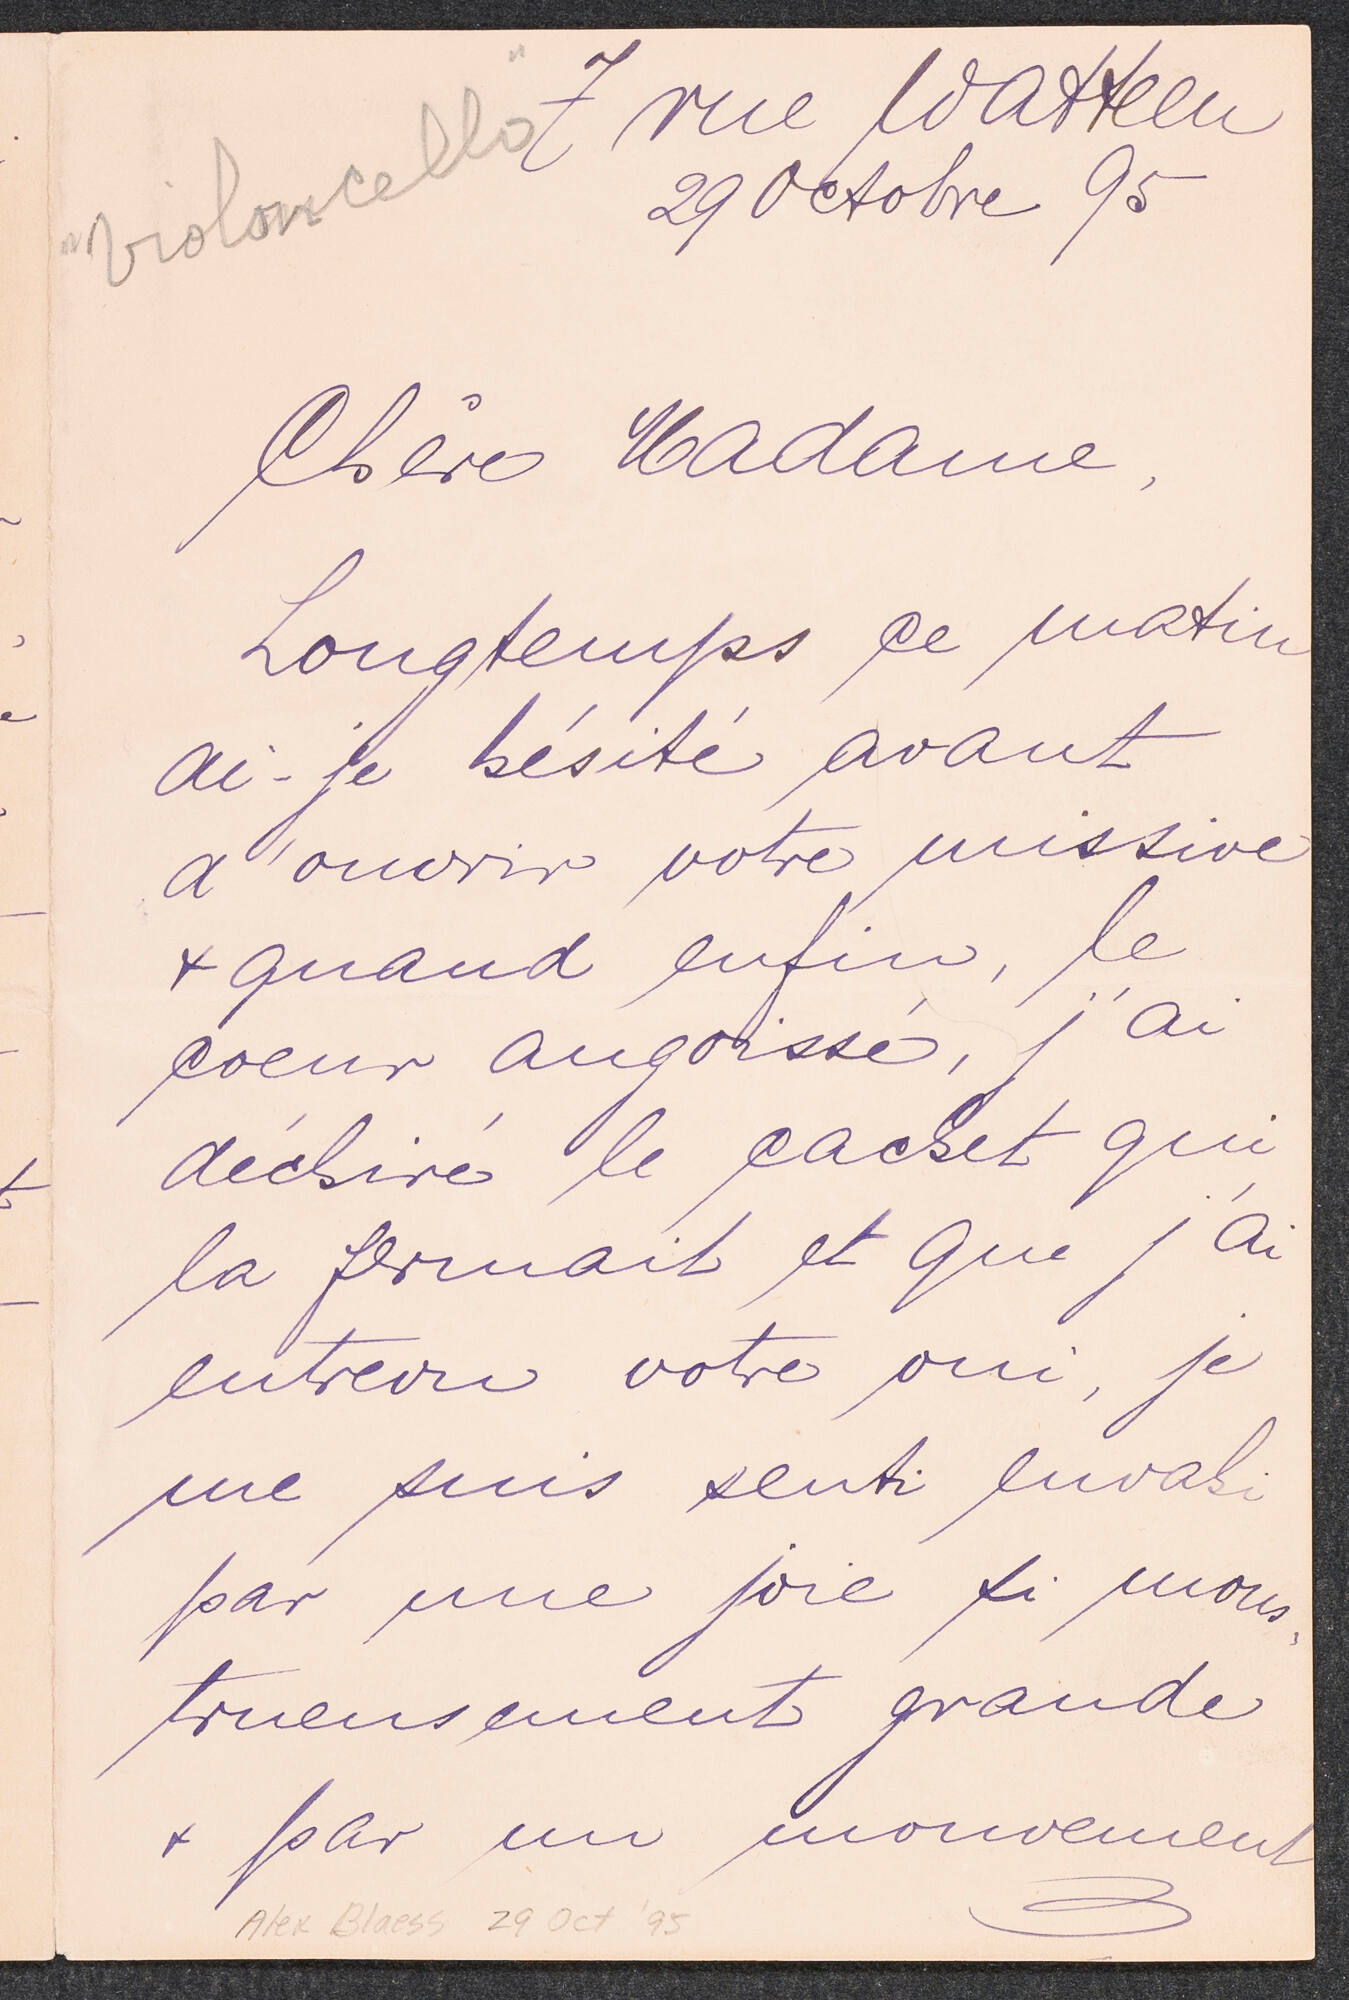 "Violoncello"
7 rue Watteeu
29 Octobre 95
Chère Madame,
Longtemps ce matin
ai-je hésité avant
d'ouvrir votre missive
+ quand enfin, le
coeur angoissé, j'ai
déchiré le cachet qui
la fermait et que j'ai
entrevu votre oui, je
me suis senti envahi
par une joie si mons-
trueusement grande
+ par un mouvement
Alex Blaess 29 Oct '95